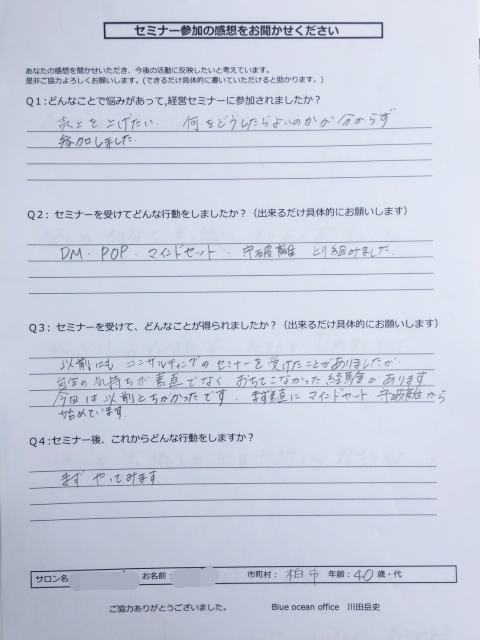 セミナー参加の感想をお聞かせください
あなたの感想を聞かせいただき、今後の活動に反映したいと考えています。
是非ご協力よろしくお願いします。(できるだけ具体的に書いていただけると助かります。)
Q1:どんなことで悩みがあって,経営セミナーに参加されましたか?
売上を上げたい 何をどうしたらよいのかが分からず
参加しました
Q2: セミナーを受けてどんな行動をしましたか?(出来るだけ具体的にお願いします)
DM・POP・マインドセット・守破離 とり組みました
Q3: セミナーを受けて、どんなことが得られましたか?(出来るだけ具体的にお願いします)
以前にも コンサルティングのセミナーを受けたことがありましたが
自分の気持ちが素直でなく おちてこなかった経験があります
今回は以前とちがかったです。まず素直にマインドセット 守破離から
始めています
Q4:セミナー後、これからどんな行動をしますか?
まず やってみます
サロン名 お名前: 市町村: 柏市 年齢: 40 歳・代
ご協力ありがとうございました。 Blue ocean office 川田岳史